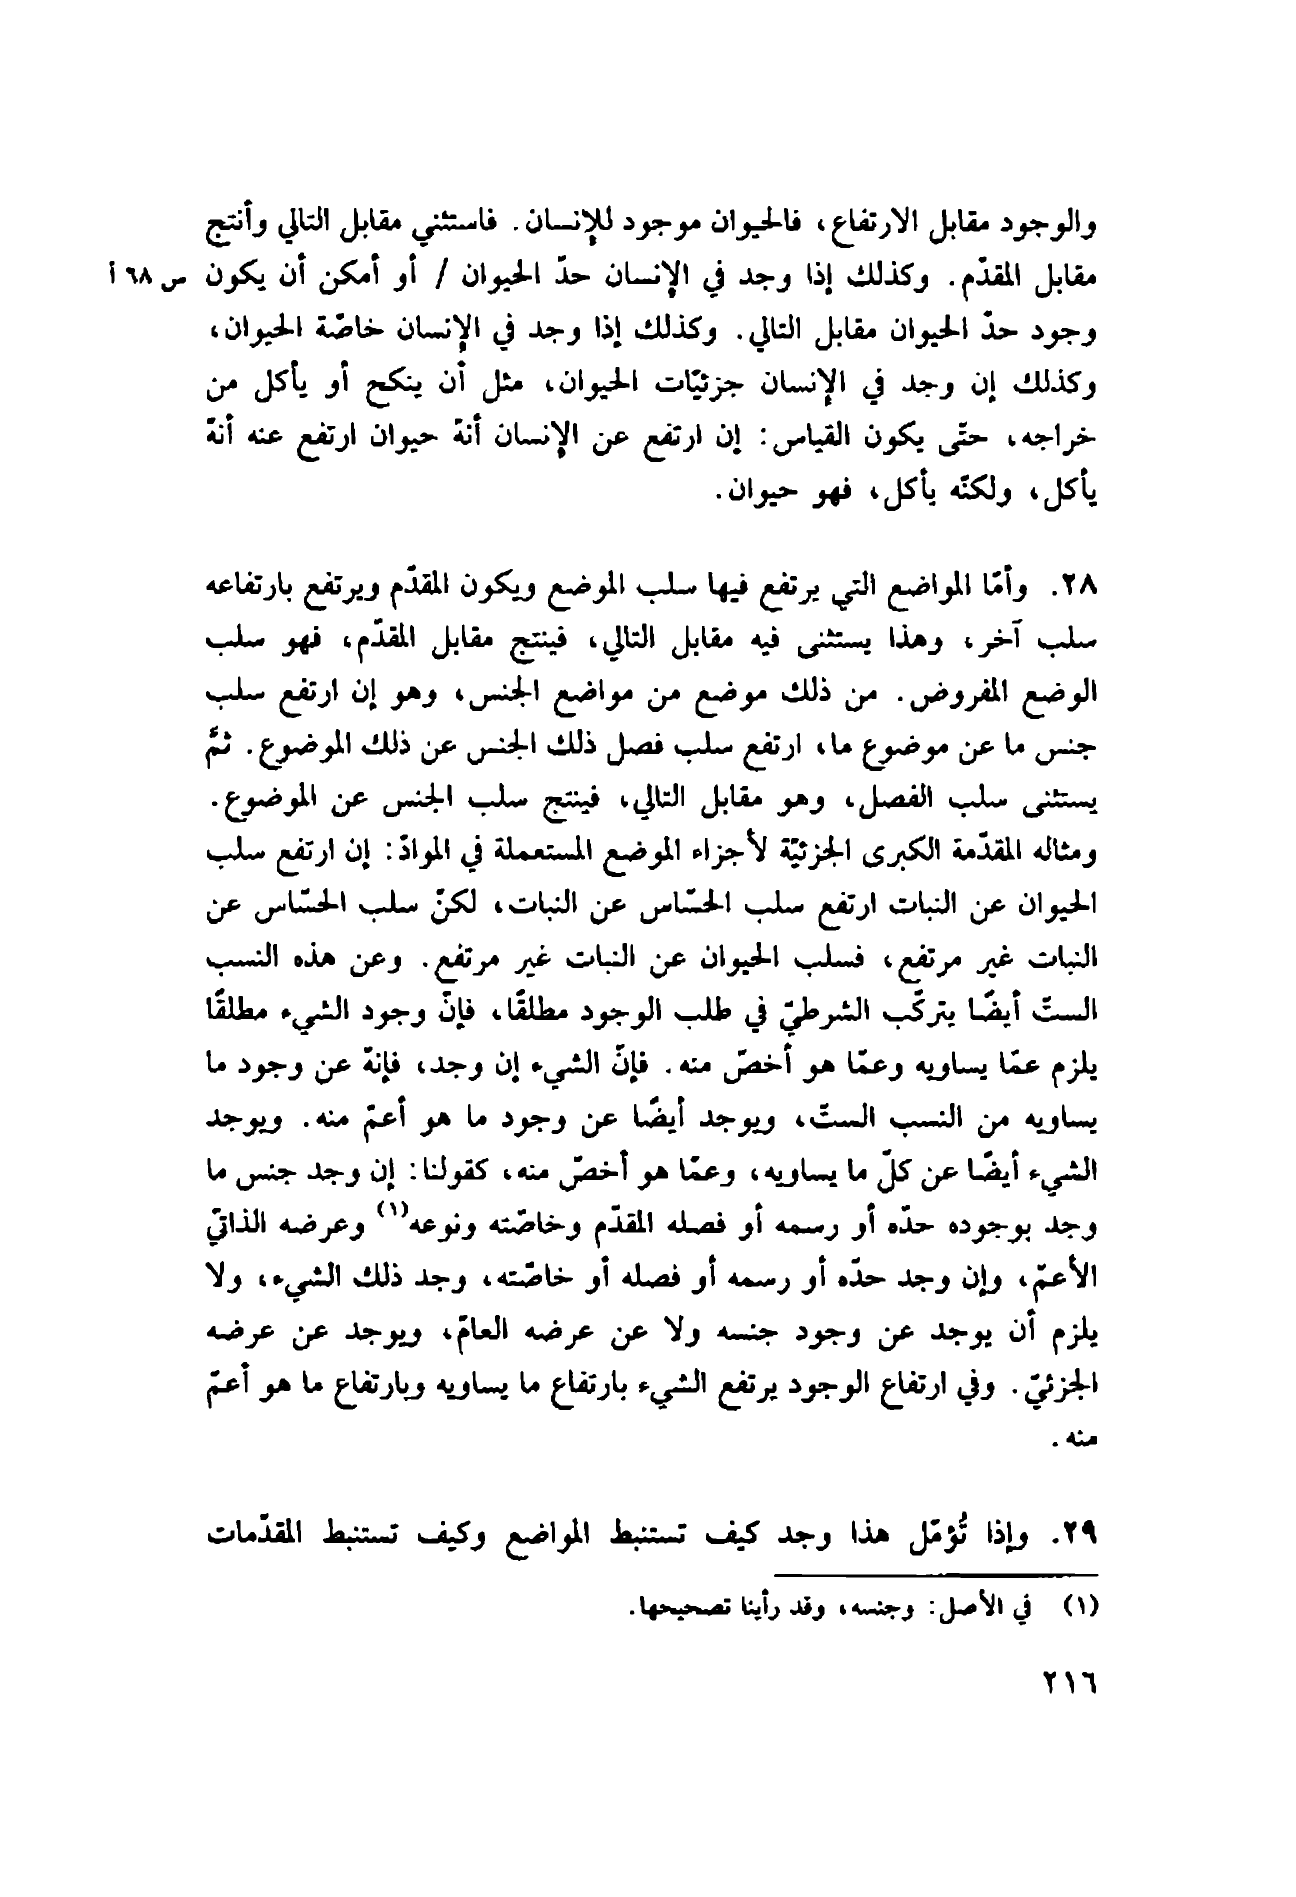 والوجود مقابل الارتفاع، فالحيوان موجود للإنسان. فاستثني مقابل التالي وأنتج
مقابل المقدّم. وكذلك إذا وجد في الإنسان حدّ الحيوان / أو أمكن أن يكون ص ٦٨ أ
وجود حدّ الحيوان مقابل التالي. وكذلك إذا وجد في الإنسان خاصّة الحيوان،
وكذلك إن وجد في الإنسان جزئيّات الحيوان، مثل أن ينكح أو يأكل من
خراجه، حتّى يكون القياس: إن ارتفع عن الإنسان أنهّ حيوان ارتفع عنه أنهّ
يأكل، ولكنّه يأكل، فهو حيوان.
٢٨. وأمّا المواضع التي يرتفع فيها سلب الموضع ويكون المقدّم ويرتفع بارتفاعه
سلب آخر، وهذا يستثنى فيه مقابل التالي، فينتج مقابل المقدّم، فهو سلب
الوضع المفروض. من ذلك موضع من مواضع الجنس، وهو إن ارتفع سلب
جنس ما عن موضوع ما، ارتفع سلب فصل ذلك الجنس عن ذلك الموضوع. ثمَّ
يستثنى سلب الفصل، وهو مقابل التالي، فينتج سلب الجنس عن الموضوع.
ومثاله المقدّمة الكبرى الجزئيّة لأجزاء الموضع المستعملة في الموادّ: إن ارتفع سلب
الحيوان عن النبات ارتفع سلب الحسّاس عن النبات، لكنّ سلب الحسّاس عن
النبات غير مرتفع، فسلب الحيوان عن النبات غير مرتفع. وعن هذه النسب
الستّ أيضًا يتركّب الشرطيّ في طلب الوجود مطلقًا، فإنّ وجود الشيء مطلقًا
يلزم عمّا يساويه وعمّا هو أخصّ منه. فإنّ الشيء إن وجد، فإنهّ عن وجود ما
يساويه من النسب الستّ، ويوجد أيضًا عن وجود ما هو أعمّ منه. ويوجد
الشيء أيضًا عن كلّ ما يساويه، وعمّا هو أخصّ منه، كقولنا: إن وجد جنس ما
وجد بوجوده حدّه أو رسمه أو فصله المقدّم وخاصّته ونوعه(١) وعرضه الذاتيّ
الأعمّ، وإن وجد حدّه أو رسمه أو فصله أو خاصّته، وجد ذلك الشيء، ولا
يلزم أن يوجد عن وجود جنسه ولا عن عرضه العامّ، ويوجد عن عرضه
الجزئيّ. وفي ارتفاع الوجود يرتفع الشيء بارتفاع ما يساويه وبارتفاع ما هو أعمّ
منه.
٢٩. وإذا تُؤمّل هذا وجد كيف تستنبط المواضع وكيف تستنبط المقدّمات
(١) في الأصل: وجنسه، وقد رأينا تصحيحها.
٢١٦